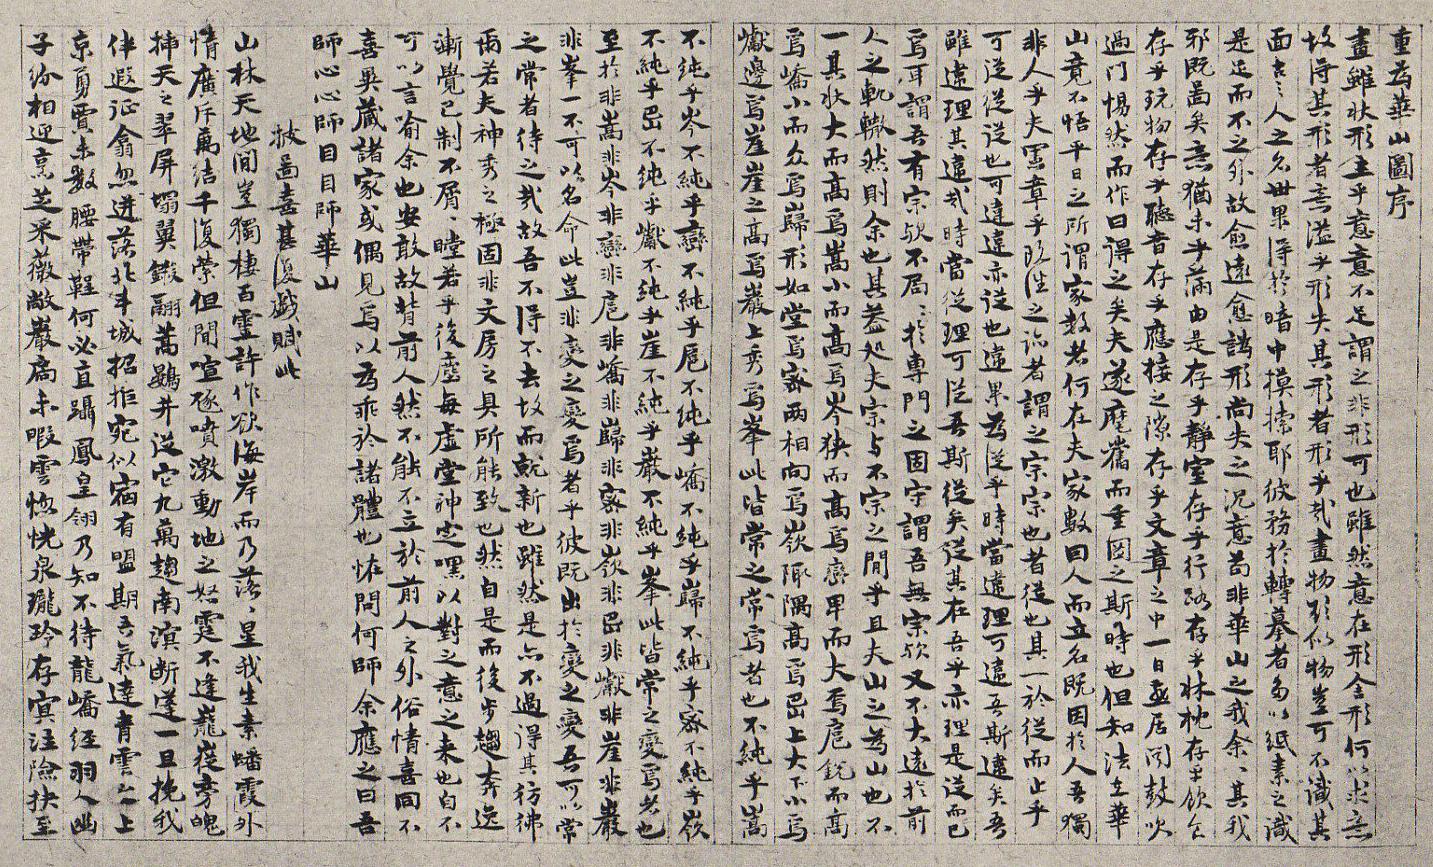 重為華山圖序
畫雖狀形主乎意意不足謂之非形可也雖然意在形舍形何以求意
故得其形者意溢乎形失其形者形乎哉畫物欲似物豈可不識其
面古之人之名世果得於暗中摸擦耶彼務於轉摹者多以紙素之識
是足而不之外故愈遠愈譌形尚失之況意苟非華山之我余余其我
邪既圖矣意猶未乎滿由是存乎靜室存乎行路存乎牀枕存乎飲食
存乎玩物存乎聽音存乎應接之隙存乎文章之中一日燕居聞鼓吹
過門惕然而作曰得之矣夫遂麾舊而重圖之斯時也但知法在華
山竟不悟平日之所謂家數者何在夫家數因人而立名既因於人吾獨
非人乎夫憲章乎既往之迹者謂之宗宗也者從也其一於從而止乎
可從從從也可違違亦從也違果為從乎時當違理可違吾斯違矣吾
雖違理其違哉時當從理可從吾斯從矣從其在吾乎亦理是從而已
焉耳謂吾有宗歟不局局於專門之固守謂吾無宗歟又不大遠於前
人之軌轍然則余也其蓋処夫宗与不宗之間乎且夫山之為山也不
一其狀大而高焉嵩小而高焉岑狹而高焉巒卑而大焉扈銳而高
焉嶠小而众焉巋形如堂焉密兩相向焉嶔陬隅高焉岊上大下小焉
巘邊焉崖崖之高焉巖上秀焉峯此皆常之常焉者也不純乎嵩
不純乎岑不純乎巒不純乎扈不純乎嶠不純乎巋不純乎密不純乎嶔
不純乎岊不純乎巘不純乎崖不純乎巖不純乎峯此皆常之變焉者也
至於非嵩非岑非巒非扈非嶠非巋非密非嶔非岊非巘非崖非巖
非峯一不可以名命此豈非變之變焉者乎彼既出於變之變吾可以常
之常者待之哉故吾不得不去故而就新也雖然是亦不過得其彷彿
耳若夫神秀之極固非文房之具所能致也然自是而後步趨奔迸
漸覺已制不屑屑瞠若乎後塵每虛堂神定嘿以對之意之来也自不
可以言喻余也安敢故背前人然不能不立於前人之外俗情喜同不
喜異藏諸家或偶見焉以為乖於諸體也怪問何師余應之曰吾
師心心師目目師華山
披圖喜甚復戲賦此
山林天地間豈獨棲百靈許作欲海岸而乃落落星我生素蟠霞外
情廣斥萬結千復縈但聞喧豗噴激動地之怒霆不逢巃嵸旁魄
插天之翠屏塌翼鎩翮蒿鷃井從它九萬趨南溟斷蓬一旦挽我
伴遐征翕忽迸落北斗城招拒宛似宿有盟期吾氣達青雲之上
京勇賈未数腰帶鞓何必直躡鳳皇翎乃知不待龍嶠經羽人幽
子紛相迎烹芝采薇敞巖扃未暇雲惚恍泉瓏玲存寞注險抉至